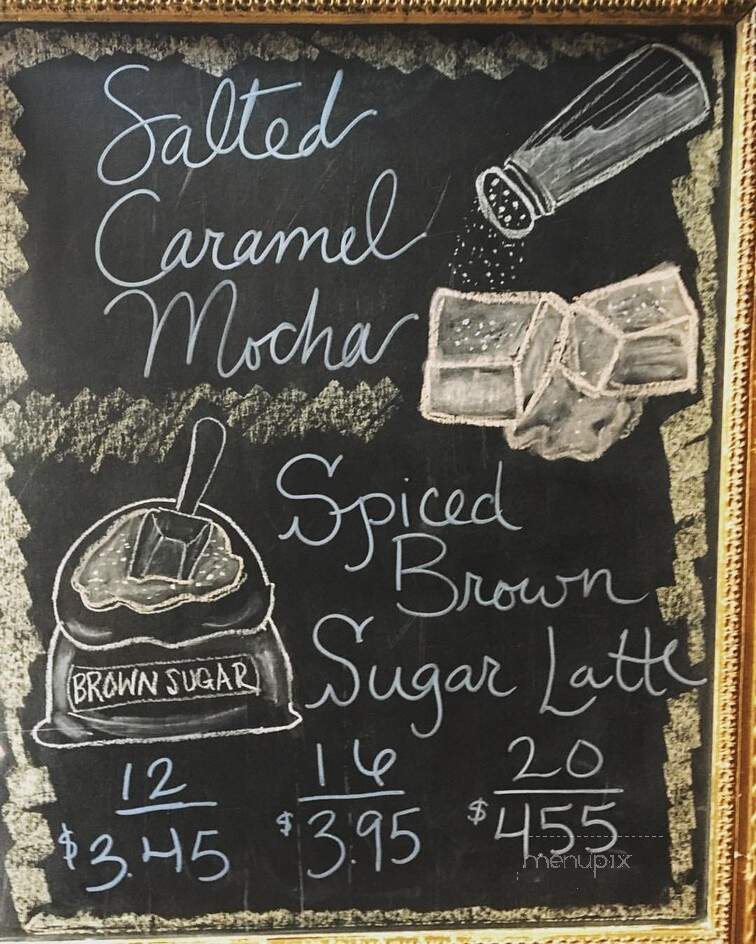 Salted
Caramel
Mocha
Spiced
Brown
Sugar Latte
BROWN SUGAR
12 16 20
$3.45 $3.95 $455
menupix